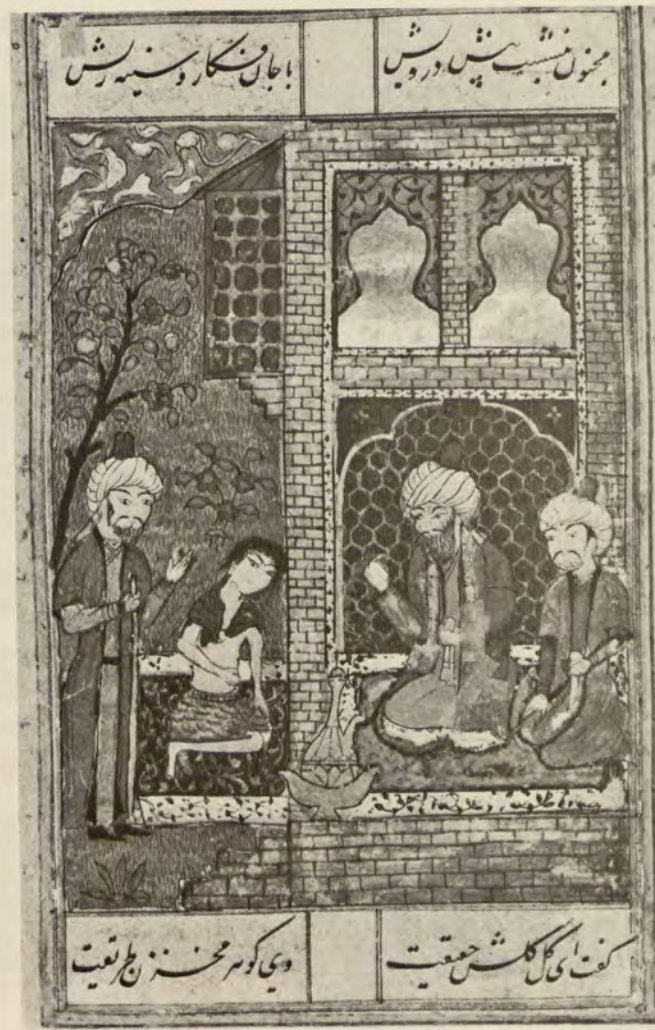 مجنون بنشست پیش درویش با جان فکار و سینه ریش
کفت ای کل کلشن حقیقت وی کوهر مخزن طریقت